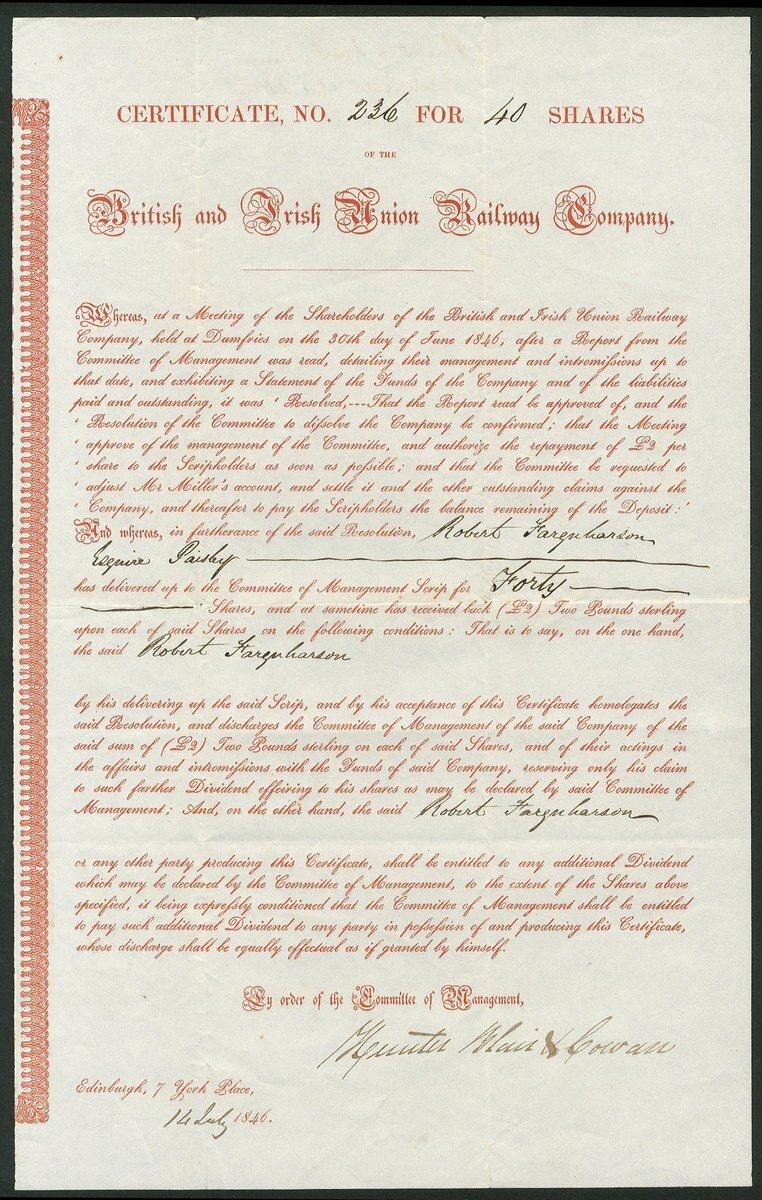 CERTIFICATE, NO. 236 FOR 40 SHARES
OF THE
British and Irish Union Railway Company.
Whereas, at a Meeting of the Shareholders of the British and Irish Union Railway
Company, held at Dumfries on the 30th day of June 1846, after a Report from the
Committee of Management was read, detailing their management and intromissions up to
that date, and exhibiting a Statement of the Funds of the Company and of the liabilities
paid and outstanding, it was ‘ Resolved,---That the Report read be approved of, and the
‘ Resolution of the Committee to dissolve the Company be confirmed; that the Meeting
‘ approve of the management of the Committee, and authorize the repayment of £2 per
‘ share to the Scripholders as soon as possible; and that the Committee be requested to
‘ adjust Mr Miller's account, and settle it and the other outstanding claims against the
‘ Company, and thereafter to pay the Scripholders the balance remaining of the Deposit:’
And whereas, in furtherance of the said Resolution, Robert Farquharson
Esquire Paisley
has delivered up to the Committee of Management Scrip for Forty
Shares, and at sametime has received back (£2) Two Pounds sterling
upon each of said Shares on the following conditions: That is to say, on the one hand,
the said Robert Farquharson
by his delivering up the said Scrip, and by his acceptance of this Certificate homologates the
said Resolution, and discharges the Committee of Management of the said Company of the
said sum of (£2) Two Pounds sterling on each of said Shares, and of their actings in
the affairs and intromissions with the Funds of said Company, reserving only his claim
to such farther Dividend effeiring to his shares as may be declared by said Committee of
Management; And, on the other hand, the said Robert Farquharson
or any other party producing this Certificate, shall be entitled to any additional Dividend
which may be declared by the Committee of Management, to the extent of the Shares above
specified, it being expressly conditioned that the Committee of Management shall be entitled
to pay such additional Dividend to any party in possession of and producing this Certificate,
whose discharge shall be equally effectual as if granted by himself.
By order of the Committee of Management,
Hunter Blair & Cowan
Edinburgh, 7 York Place,
14 July 1846.